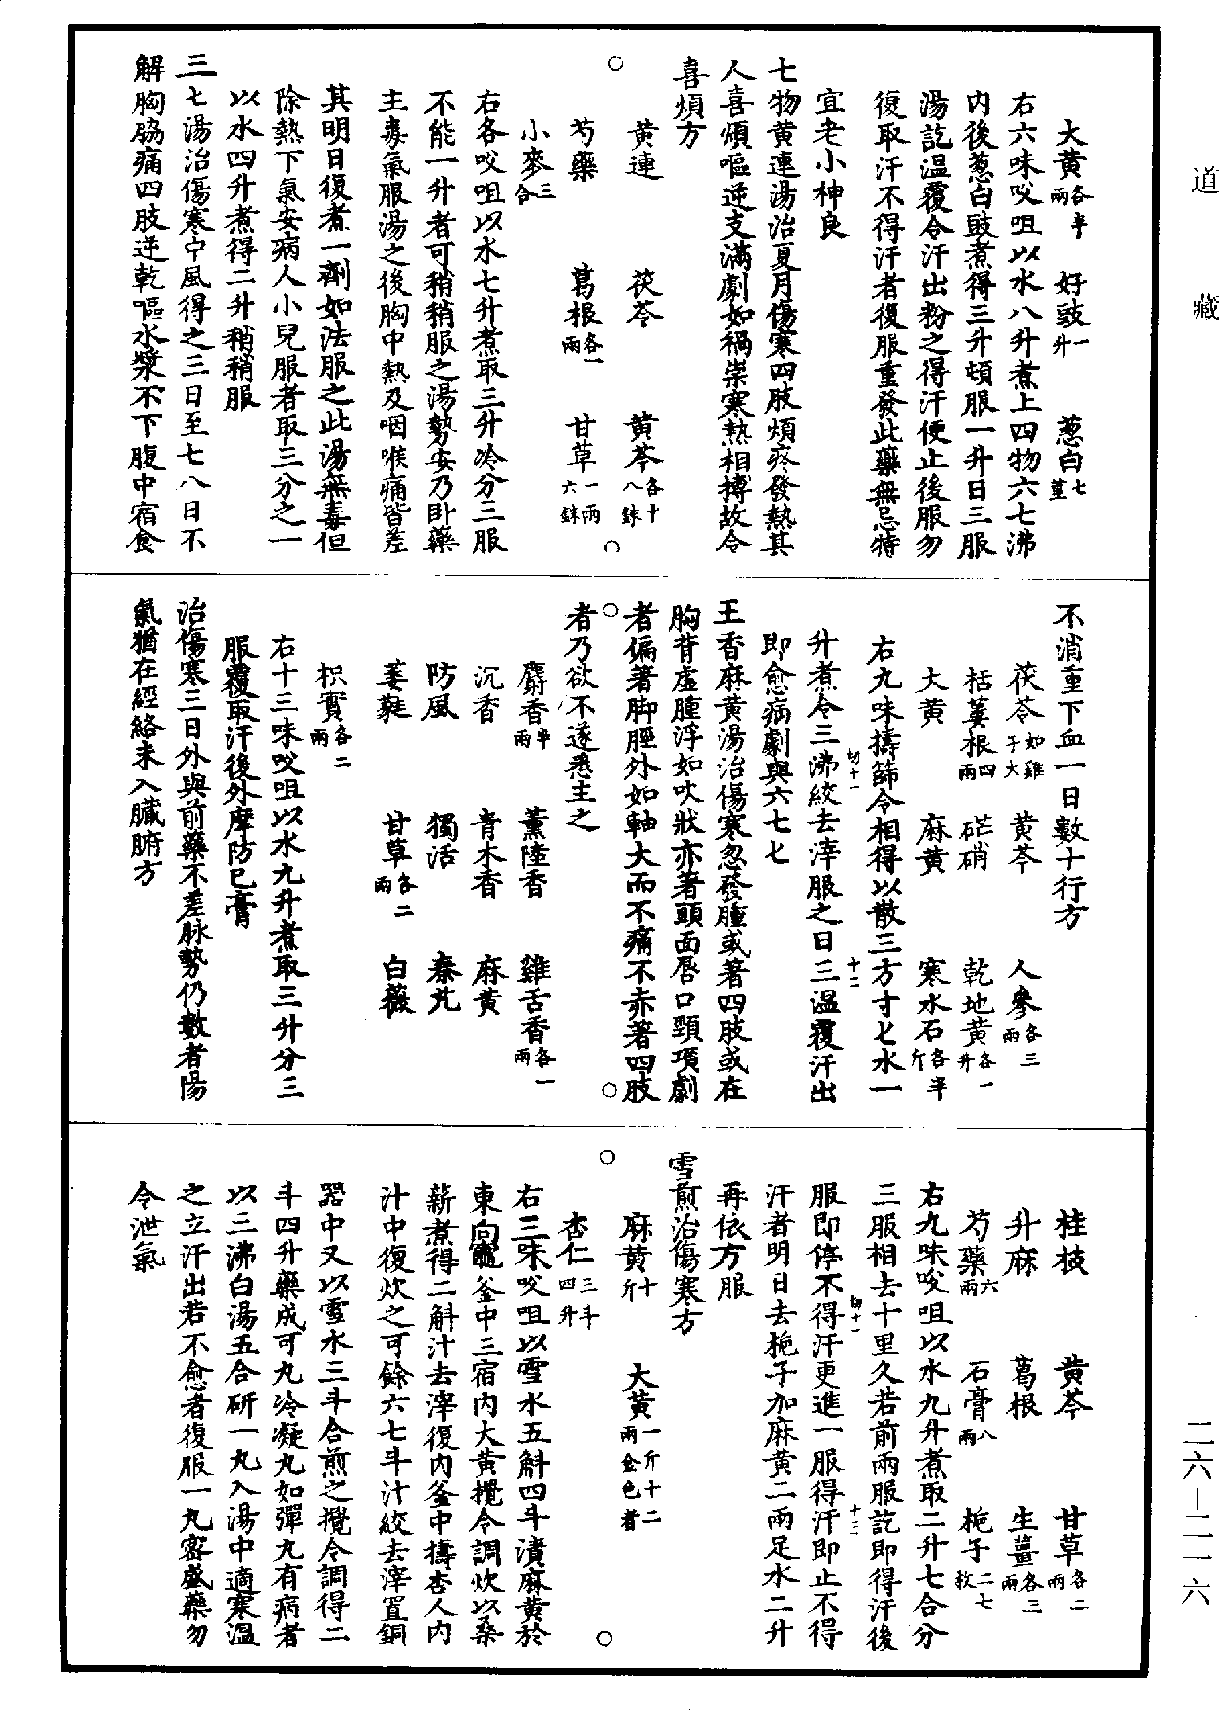 道藏
大黃各半兩 好豉一升 葱白七莖
右六味㕮咀以水八升煮上四物六七沸
內後葱白豉煮得三升頓服一升日三服
湯訖溫覆令汗出粉之得汗便止後服勿
復取汗不得汗者復服重發此藥無忌特
宜老小神良
七物黃連湯治夏月傷寒四肢煩疼發熱其
人喜煩嘔逆支滿劇如禍祟寒熱相搏故令
喜煩方
黃連 茯苓 黃芩各十八銖
芍藥 葛根各一兩 甘草一兩六銖
小麥三合
右各㕮咀以水七升煮取三升冷分三服
不能一升者可稍稍服之湯勢安乃卧藥
主毒氣服湯之後胸中熱及咽喉痛皆差
其明日復煮一劑如法服之此湯無毒但
除熱下氣安病人小兒服者取三分之一
以水四升煮得二升稍稍服
三七湯治傷寒中風得之三日至七八日不
解胸脇痛四肢逆乾嘔水漿不下腹中宿食
不消重下血一日數十行方
茯苓如雞子大 黃芩 人參各三兩
栝蔞根四兩 芒硝 乾地黃各一升
大黃 麻黃 寒水石各半斤
右九味擣篩令相得以散三方寸匕水一
升煮令三沸絞去滓服之日三溫覆汗出
即愈病劇與六七匕
王香麻黃湯治傷寒忽發腫或著四肢或在
胸背虛腫浮如吹狀亦著頭面唇口頸項劇
者偏著脚脛外如軸大而不痛不赤著四肢
者乃欲不遂悉主之
麝香半兩 薰陸香 雞舌香各一兩
沉香 青木香 麻黃
防風 獨活 秦艽
萎蕤 甘草各二兩 白薇
枳實各二兩
右十三味㕮咀以水九升煮取三升分三
服覆取汗後外摩防已膏
治傷寒三日外與前藥不差脉勢仍數者陽
氣猶在經絡未入臟腑方
桂枝 黃芩 甘草各二兩
升麻 葛根 生薑各三兩
芍藥六兩 石膏八兩 梔子二七枚
右九味㕮咀以水九升煮取二升七合分
三服相去十里久若前兩服訖即得汗後
服即停不得汗更進一服得汗即止不得
汗者明日去梔子加麻黃二兩足水二升
再依方服
雪煎治傷寒方
麻黃十斤 大黃一斤十二兩金色者
杏仁三斗四升
右三味㕮咀以雪水五斛四斗漬麻黃於
東向竈釜中三宿內大黃攪令調炊以桑
薪煮得二斛汁去滓復內釜中擣杏人內
汁中復炊之可餘六七斗汁絞去滓置銅
器中又以雪水三斗合煎之攪令調得二
斗四升藥成可丸冷凝丸如彈丸有病者
以三沸白湯五合研一丸入湯中適寒溫
之立汗出若不愈者復服一丸密盛藥勿
令泄氣
二六－二一六